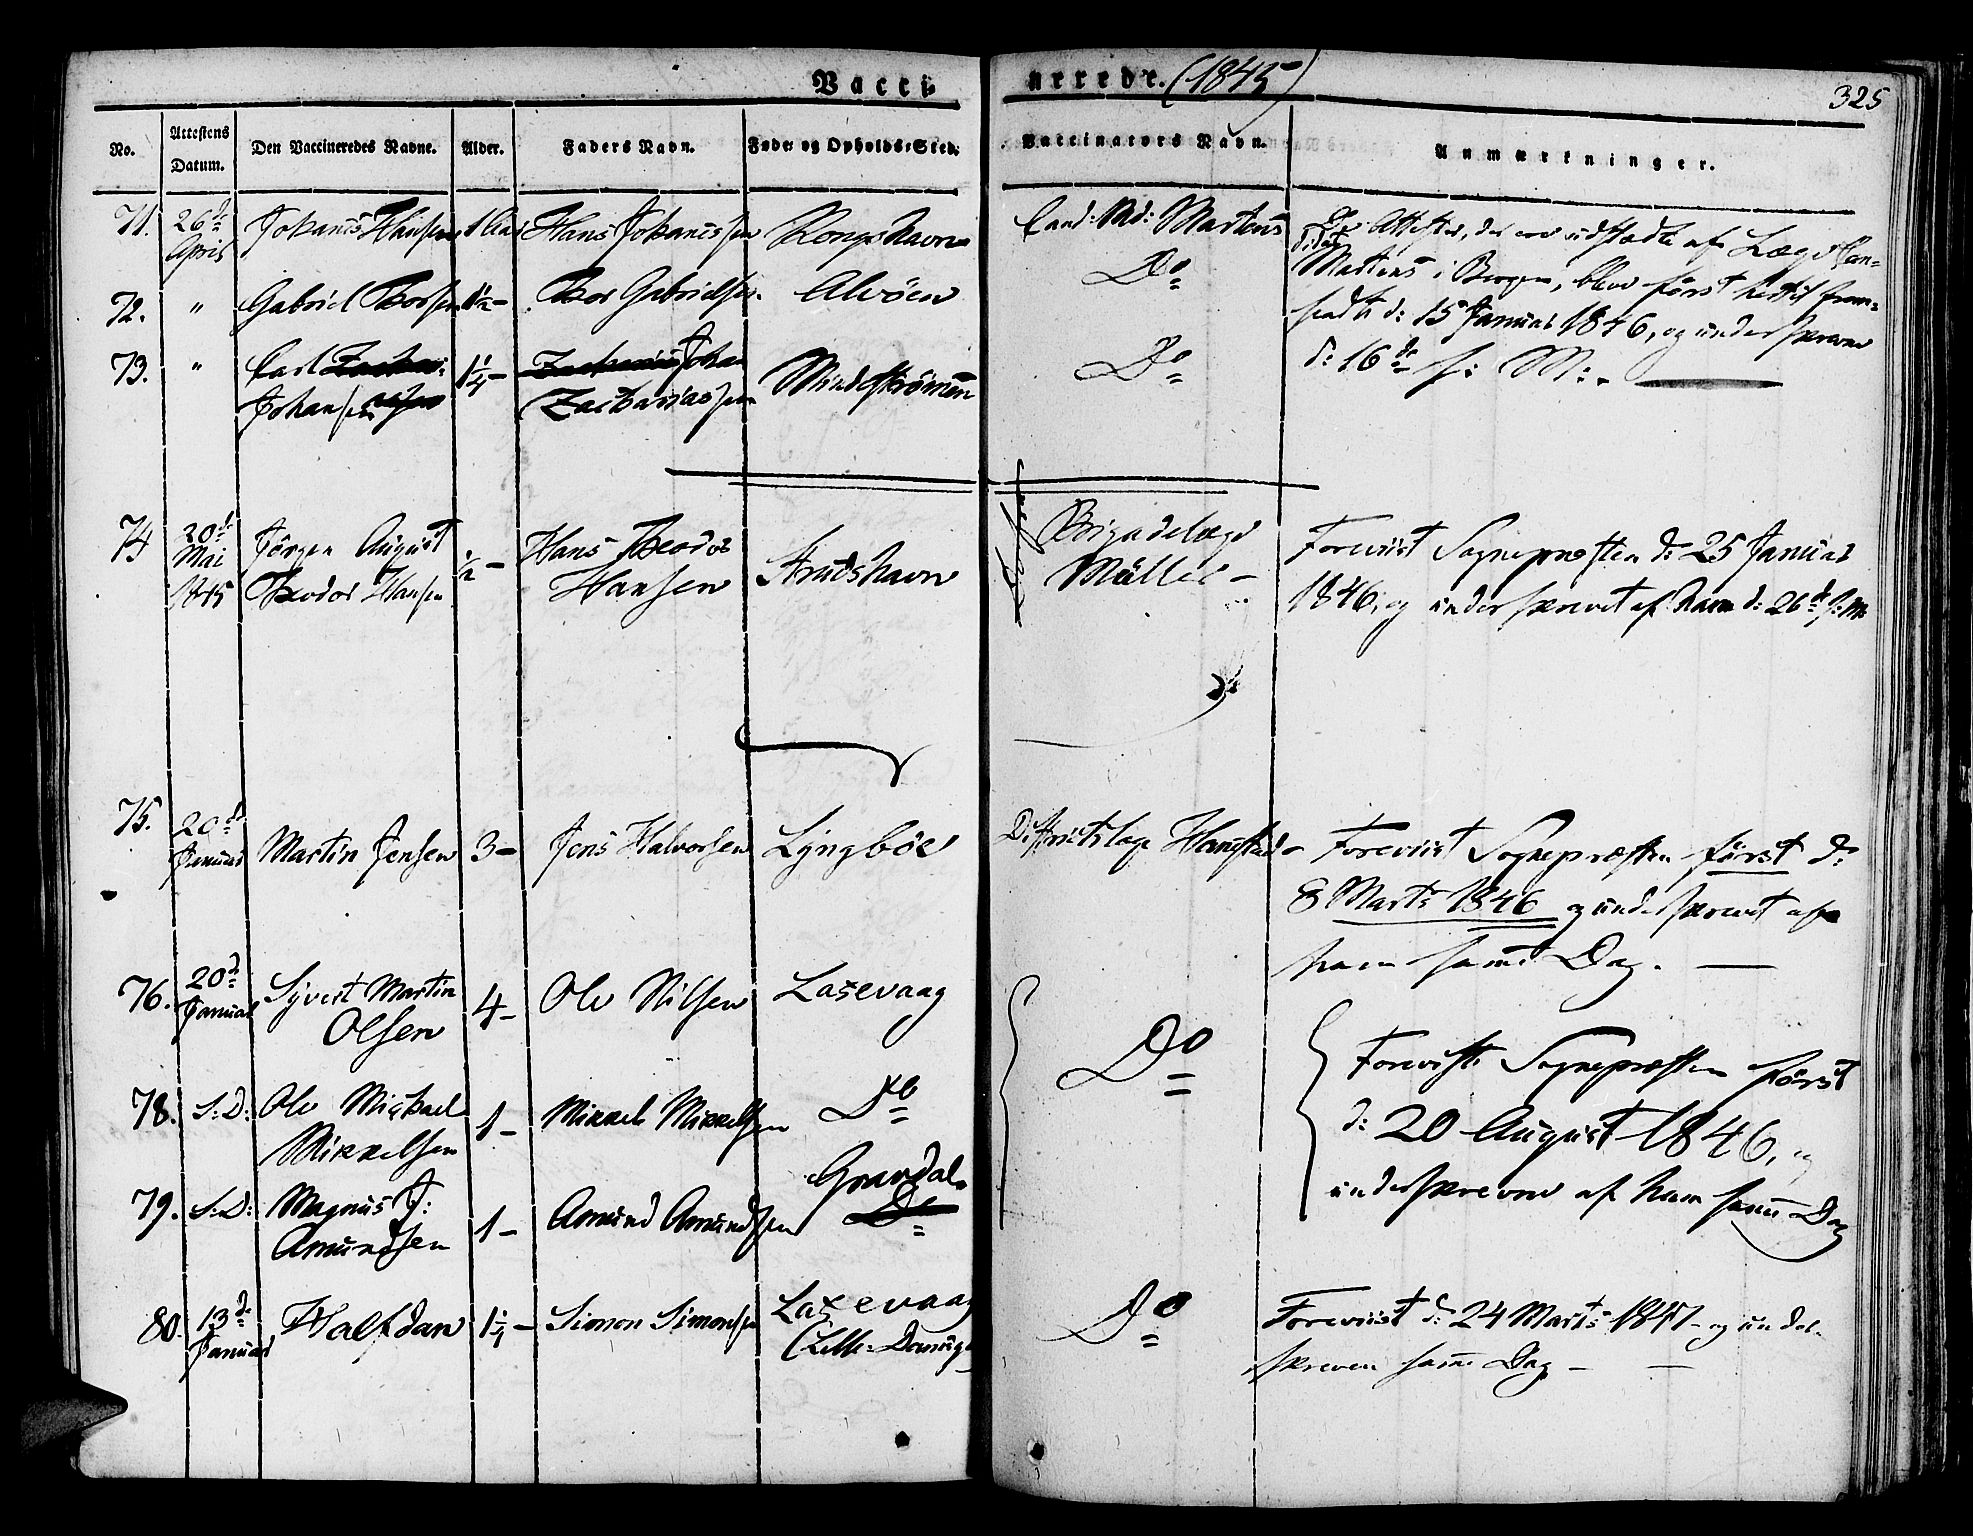 Vacci
nerede. (1845)
325
No.
Attestens Datum.
Den Vaccineredes Navne.
Alder.
Faders Navn.
Føde- og Opholds-Sted.
Vaccinators Navn.
Anmærkninger.
71. 26de April Johannes Hansen 1 Hans Johannessen Kongshavn Cand: Md: Martens
Attester, der ere udstædte af Læge Can-
didat Martens i Bergen, blev først hertil frem-
72. " Gabriel Thorsen 1½ - Thor Gabrielsen. Alvöen Do
sendte d: 15 Januar 1846, og underskrevne
73. " Carl Zacha-
Johansen 1¼ - Zacharias Johan
Zachariassen Mindeströmmen Do
d: 16de s: M:.
74 20de Mai 1845 Jörgen August
Theodor Hansen ½ - Hans Theodor
Hansen Strudshavn Brigadelæge
Müller - Foreviist Sognepræsten d: 25 Januar
1846, og underskrevet af ham d: 26de s: M:
75. 20de Januar Martin Jensen 3 - Jens Halvorsen Lyngböe Districtslæge Hanstad - Foreviist Sognepræsten först d:
8 Marts 1846 og underskrevet af
ham samme Dag.
76. 20de Januar Syvert Martin
Olsen 4 - Ole Nilsen Laxevaag Do
Foreviste Sognepræsten först
78. S: D: Ole Michael
Mikkelsen 1 - Mikkel Mikkelsen Do
d: 20 August 1846, og
79. S: D: Magnus J:
Amundsen 1 - Amund Amundsen Gravdal
Do
underskrevne af ham samme Dag
80. 13de Januar Halfdan 1¼ - Simon Simonsen Laxevaag
(Lille-Damsg Do Foreviist d: 24 Marts 1847 - og under-
skreven samme Dag -